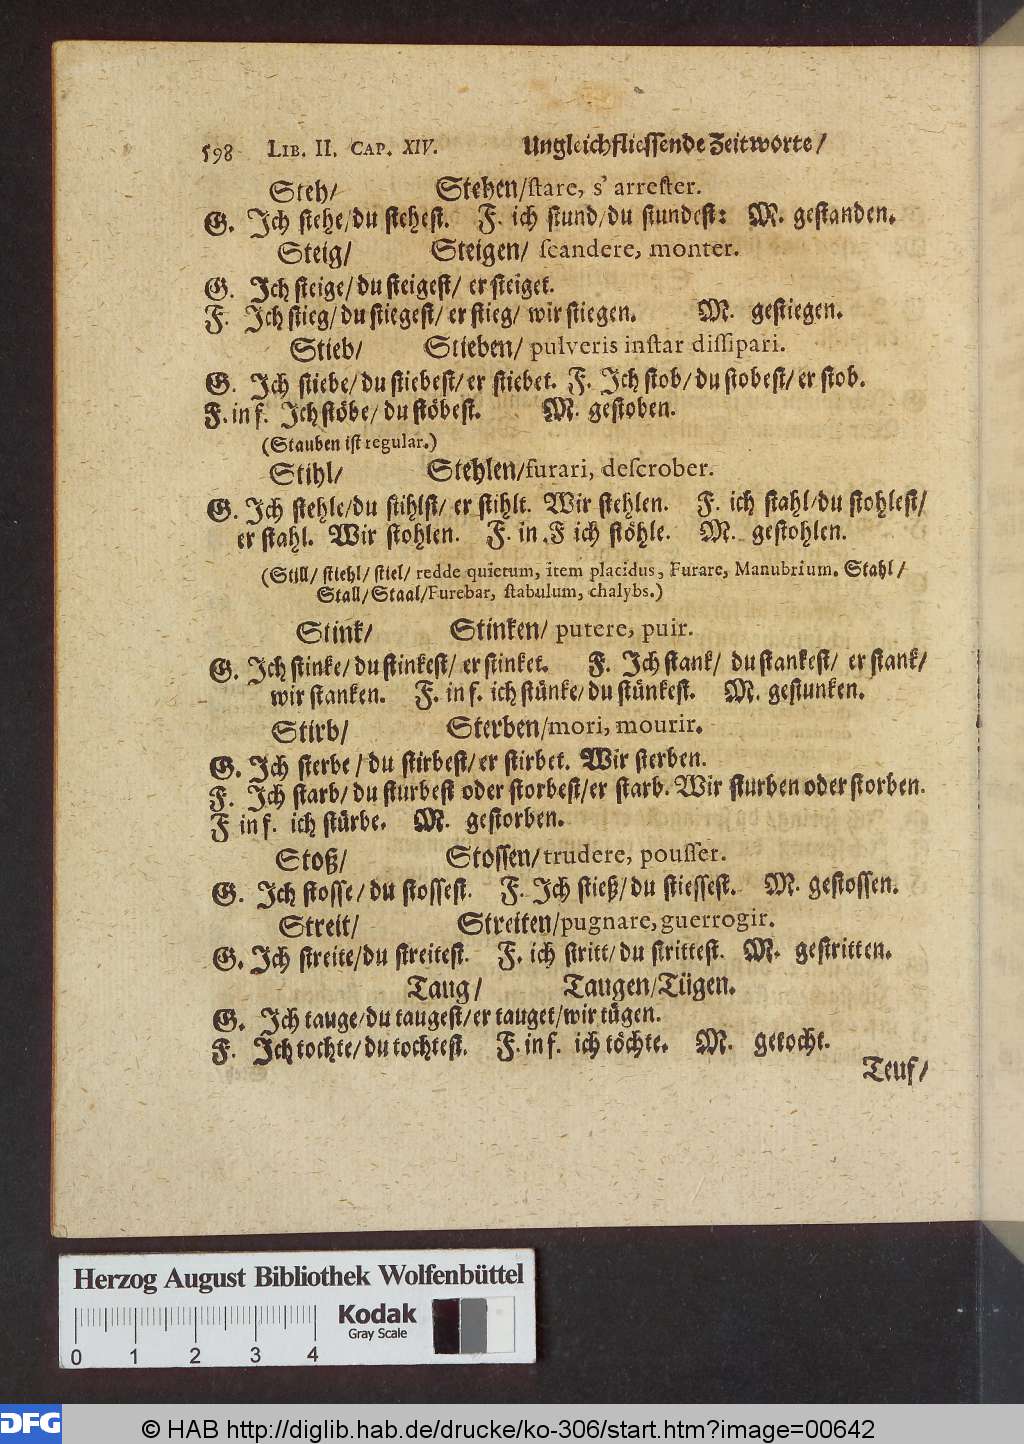 598 LIB. II. CAP. XIV. Ungleichfliessende Zeitworte/
Steh/ Stehen/stare, s' arrester.
G. Ich stehe/du stehest. F. ich stund/du stundest: M. gestanden.
Steig/ Steigen/ scandere, monter.
G. Ich steige/du steigest/ er steiget.
F. Ich stieg/du stiegest/ er stieg/ wir stiegen. M. gestiegen.
Stieb/ Stieben/ pulveris instar dissipari.
G. Ich stiebe/du stiebest/er stiebet. F. Ich stob/du stobest/er stob.
F. in f. Ich stöbe/du stöbest. M. gestoben.
(Stauben ist regular.)
Stihl/ Stehlen/furari, descrober.
G. Ich stehle/du stihlst/ er stihlt. Wir stehlen. F. ich stahl/du stohlest/
er stahl. Wir stohlen. F. in .F ich stöhle. M. gestohlen.
(Still/ stiehl/ stiel/ redde quietum, item placidus, Furare, Manubrium. Stahl/
Stall/Staal/Furebar, stabulum, chalybs.)
Stink/ Stinken/ putere, puir.
G. Ich stinke/du stinkest/ er stinket. F. Ich stank/ du stankest/ er stank/
wir stanken. F. in f. ich stünke/du stünkest. M. gestunken.
Stirb/ Sterben/mori, mourir.
G. Ich sterbe/du stirbest/er stirbet. Wir sterben.
F. Ich starb/du sturbest oder storbest/er starb. Wir sturben oder storben.
F in f. ich stürbe. M. gestorben.
Stoß/ Stossen/trudere, pousser.
G. Ich stosse/du stossest. F. Ich stieß/du stiessest. M. gestossen.
Streit/ Streiten/pugnare, guerrogir.
G. Ich streite/du streitest. F. ich stritt/du strittest. M. gestritten.
Taug/ Taugen/Tügen.
G. Ich tauge/du taugest/er tauget/wir tügen.
F. Ich tochte/du tochtest. F. in f. ich töchte. M. getocht.
Teuf/
Herzog August Bibliothek Wolfenbüttel
Kodak
Gray Scale
0 1 2 3 4
DFG © HAB http://diglib.hab.de/drucke/ko-306/start.htm?image=00642